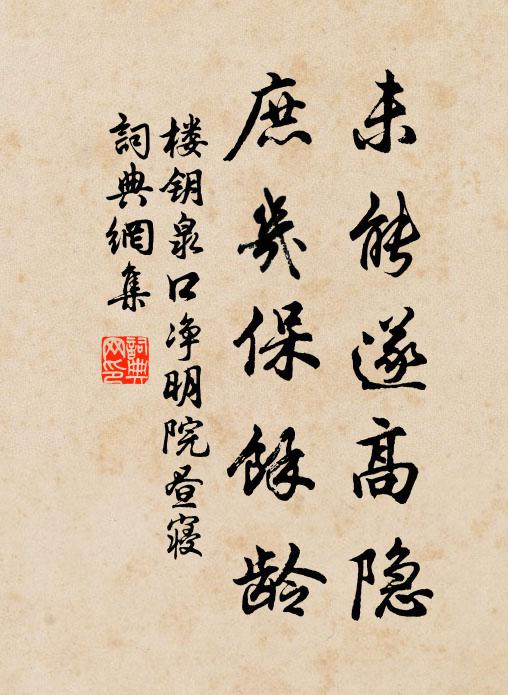 未能遂高隐
庶幾保餘龄
楼钥泉口净明院昼寝
詞典網集
詞典网印